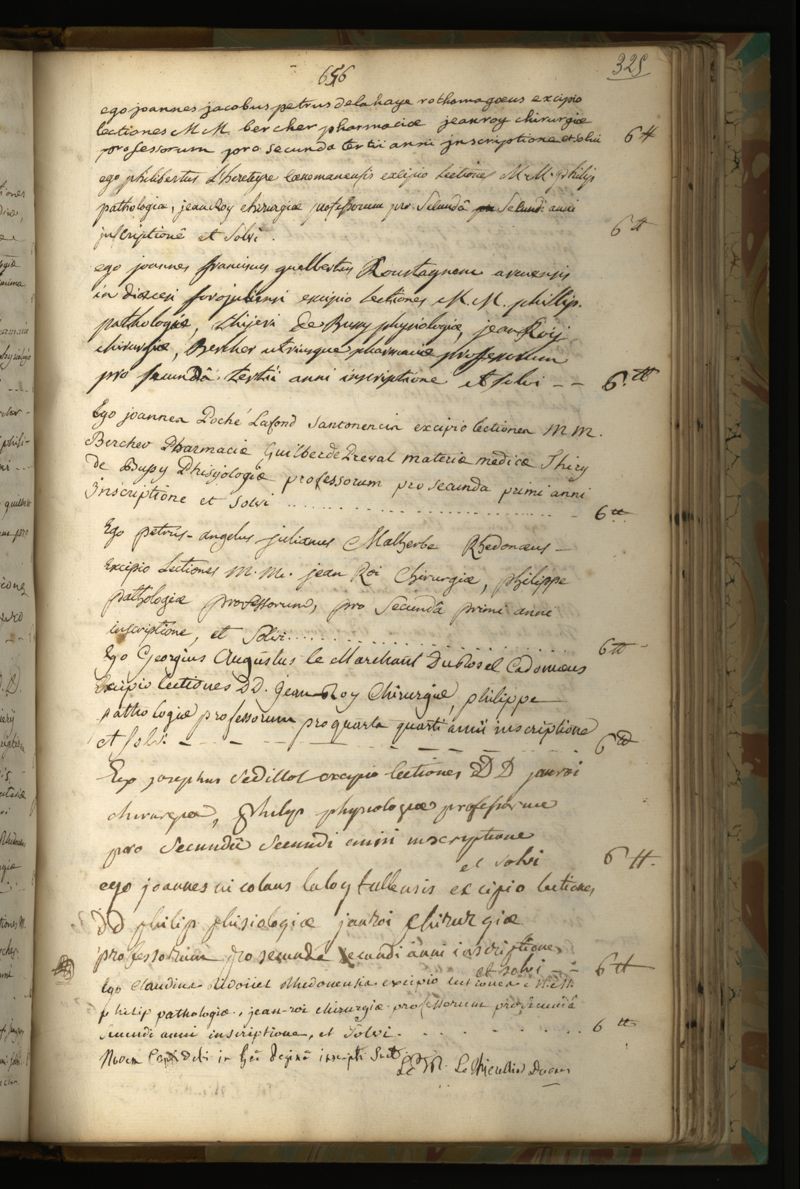 656
325
ego joannes jacobus petrus delahaye rothomagæus excipio
lectiones M M. bercher pharmaciæ jeanroy chirurgiæ
professorum pro secunda tertii anni inscriptione et solvi 6 tt
ego philibertus Lheretyre cœnomanensis excipio lectiones M. M. philip
pathologiæ, jeanRoy chirurgiæ professorum pro secundâ secundi anni
inscriptione et solvi. 6 tt
ego joannes franciscus guelbertus Roustagnenc
in diœcesi forojuliensi excipio lectiones M. M. phillip.
pathologiæ, thijeri de Bussy physiologiæ, jean Roij
chirurgiæ, Bercher utriusque pharmaciæ professorum
pro secundâ tertii anni inscriptione et solvi -- 6 tt
Ego joannes Poché Lafond Santonensis excipio lectiones M M.
Bercher Pharmaciæ Guilbert de Preval materiæ medicæ Thiry
de Bussy Phisyologiæ professorum pro secunda primi anni
Inscriptione et solvi ........ 6 tt
Ego petrus-angelus julianus Malherbe Rhedonæus -
Excipio Lectiones M. M. jean Roi Chirurgiæ, philippe
pathologiæ professorum, pro Secundâ primi anni
inscriptione, et Solvi ........ 6 tt
Ego Georgius Augustus le Marchant Dubosel Cadomæus
Excipio lectiones DD. Jean Roy Chirurgiæ, philippe
pathologiæ professorum pro quarta quarti anni inscriptione
et solvi - - - - 6 tt
Ego josephus Sedillot excipio lectiones DD janroi
chirurgiæ, philip physiologiæ professorum
pro secundâ secundi anni inscriptione
et solvi 6 tt.
ego joannes nicolaus laloy tullensis excipio lectiones
DD philip phisiologiæ janroi chirurgiæ
professorum pro secunda secundi anni inscriptione
et solvi -- 6 tt
Ego Claudius Rhedonensis excipio lectiones M. M.
philip pathologiæ, jean-roi chirurgiæ professorum pro secundâ
secundi anni inscriptione, et Solvi ........ 6 tt
Novem in inscripti sunt
Le Thieullier Decanus